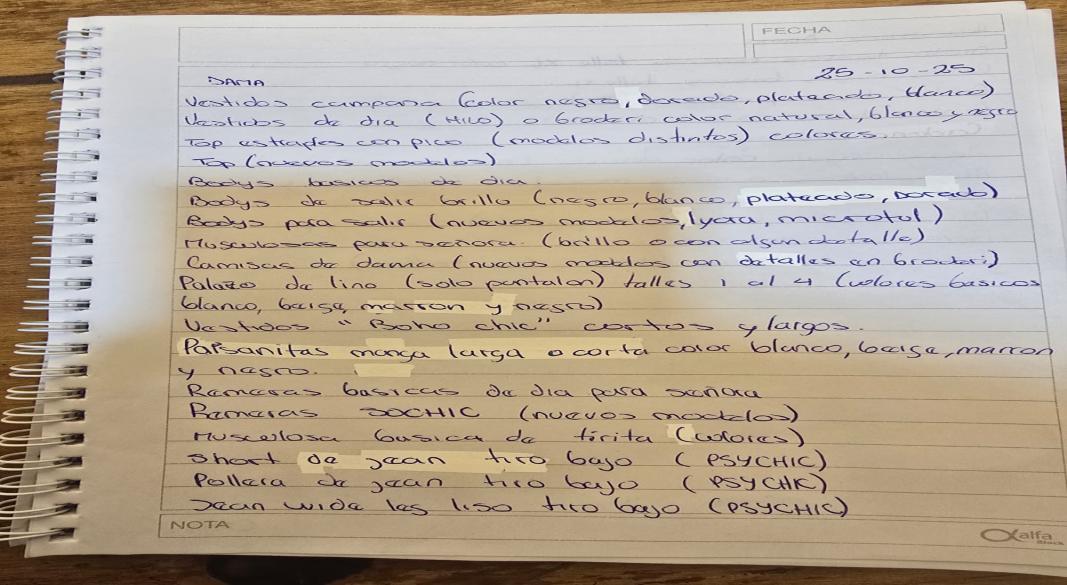 FECHA
DAMA 25-10-25
Vestidos campana (color negro, dorado, plateado, blanco)
Vestidos de dia (HILO) o broderi color natural, blanco y negro
Top estraples con pico (modelos distintos) colores.
Top (nuevos modelos)
Bodys basicos de dia.
Bodys de salir brillo (negro, blanco, plateado, Dorado)
Bodys para salir (nuevos modelos, lycra, microtul)
Musculosas para señora. (brillo o con algun detalle)
Camisas de dama (nuevos modelos con detalles en broderi)
Palazo de lino (solo pantalon) talles 1 al 4 (colores basicos
blanco, beige, marron y negro)
Vestidos "Boho chic" cortos y largos.
Paisanitas manga larga o corta color blanco, beige, marron
y negro.
Remeras basicas de dia para señora
Remeras SOCHIC (nuevos modelos)
Musculosa basica de tirita (colores)
Short de jean tiro bajo (PSYCHIC)
Pollera de jean tiro bajo (PSYCHIC)
Jean wide leg liso tiro bajo (PSYCHIC)
NOTA
alfa